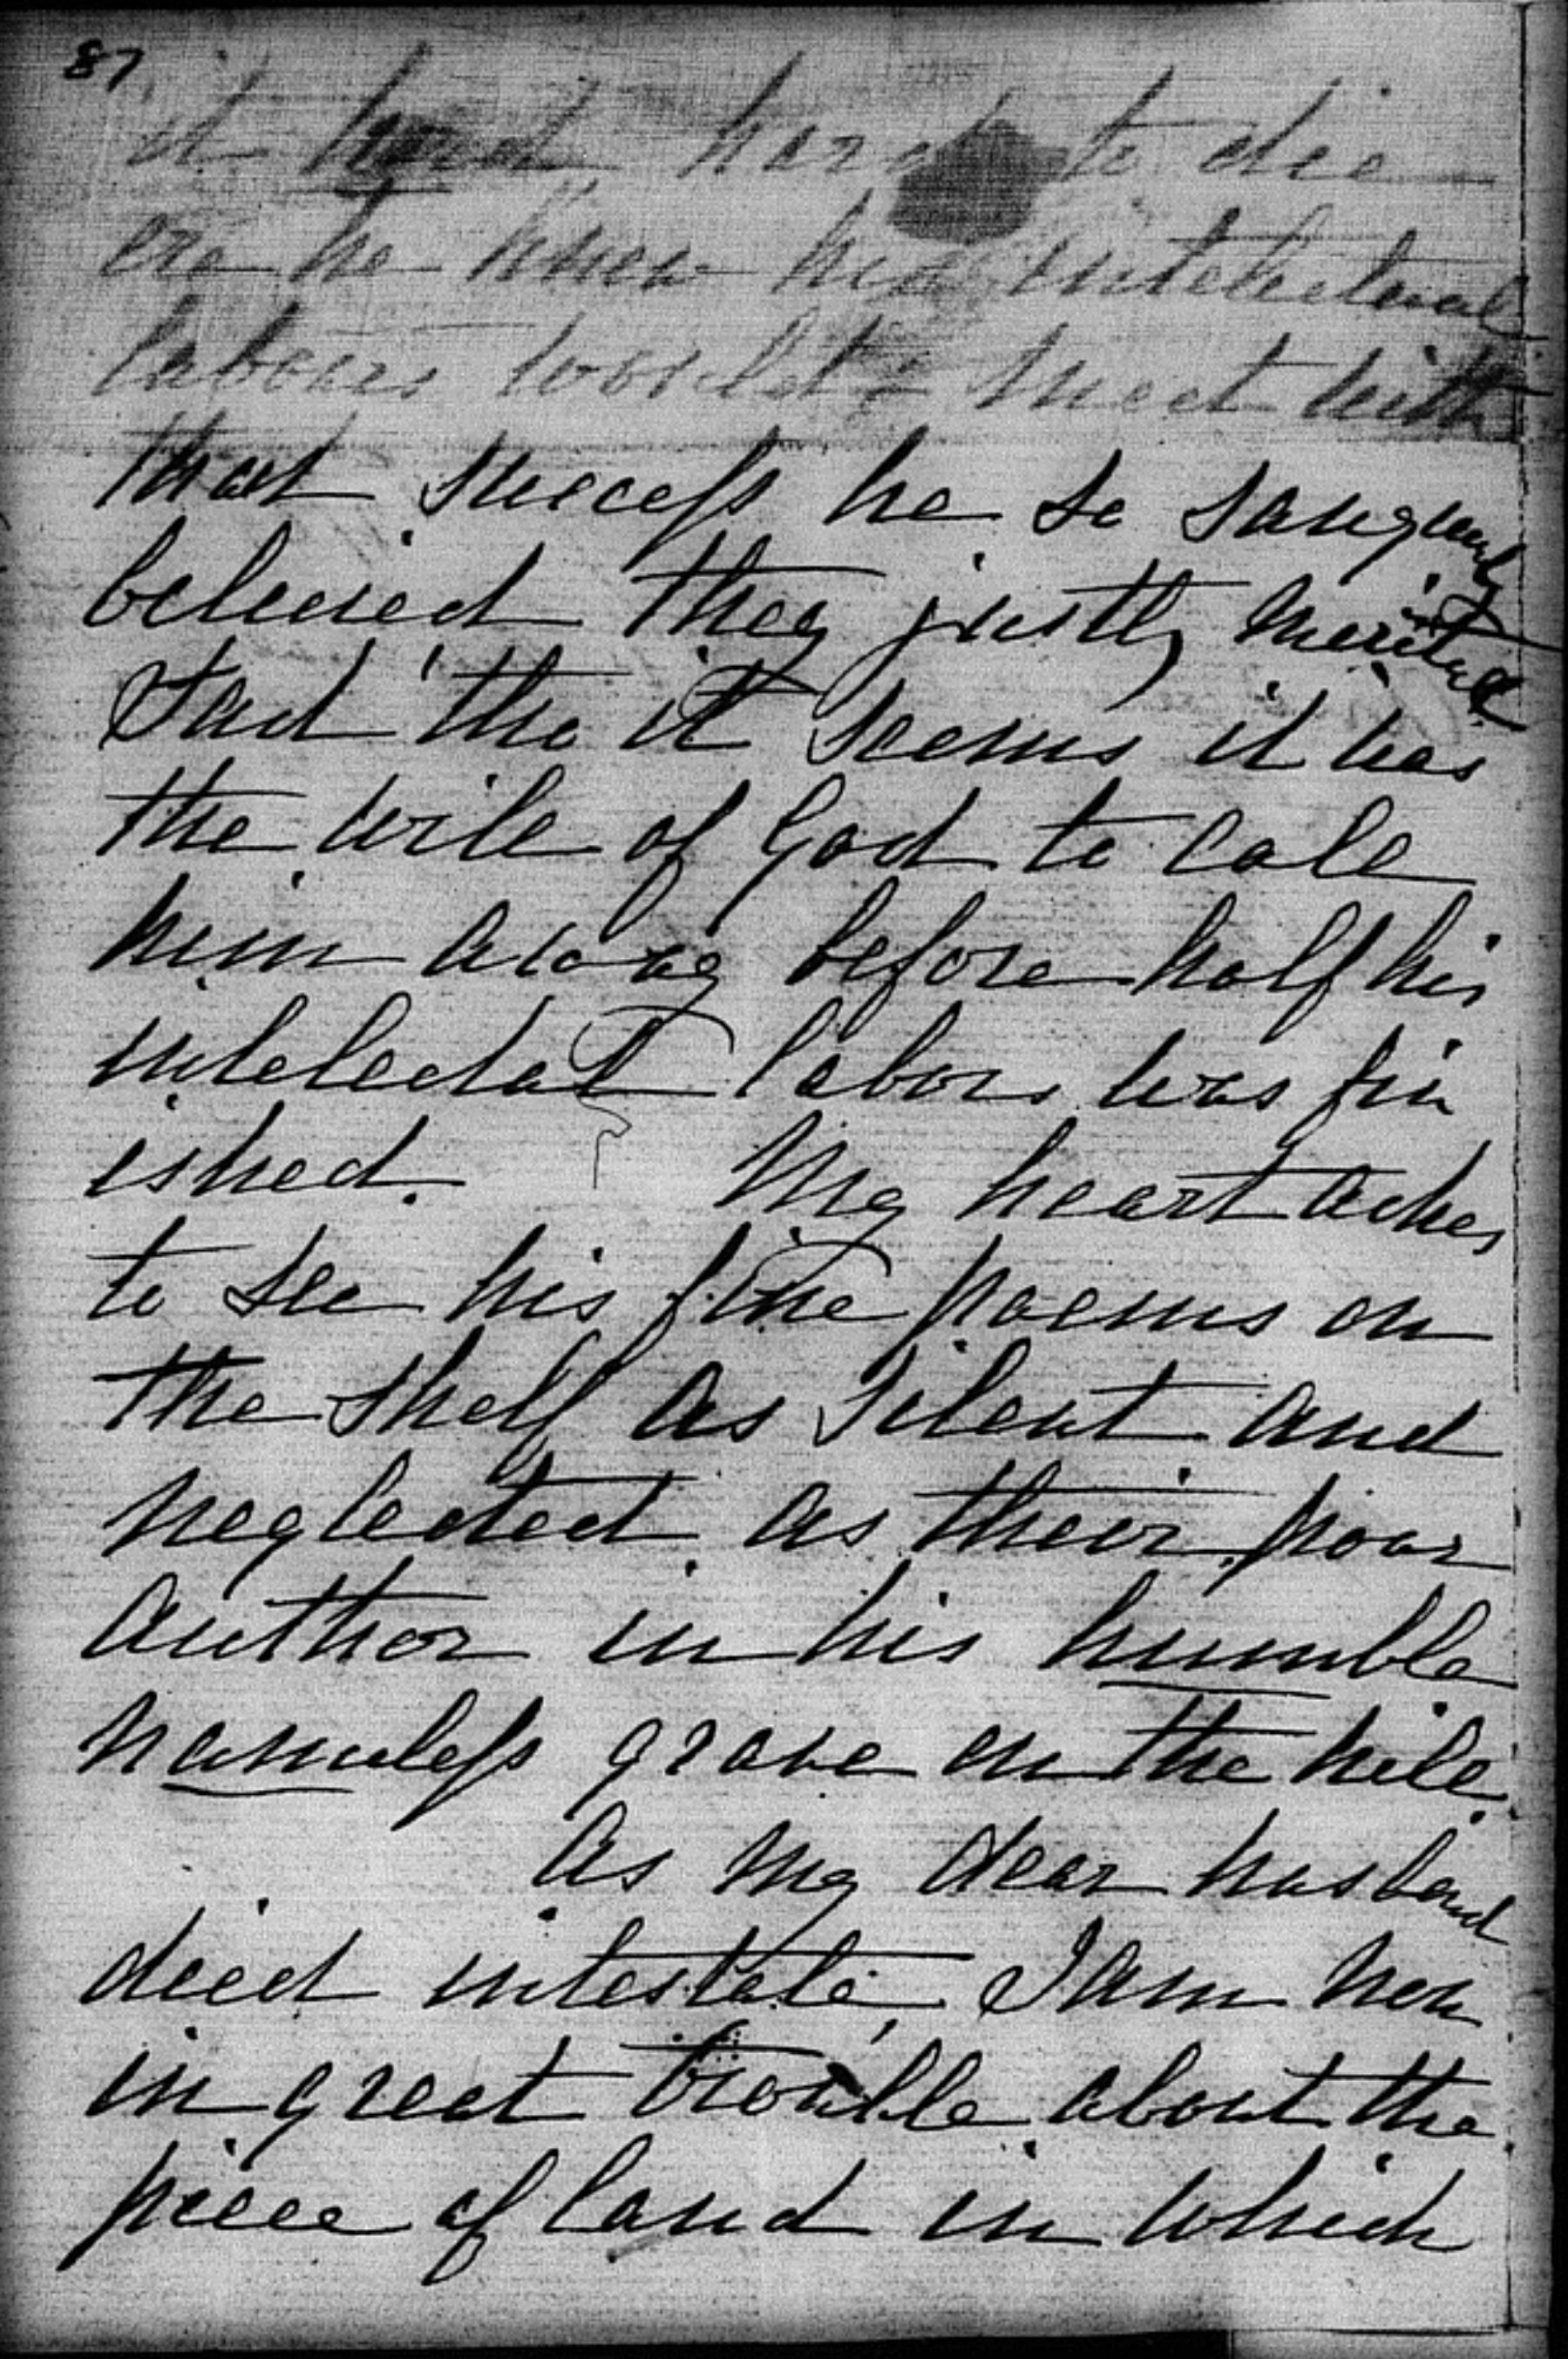 87
it hard hard to die
ere he knew his intelectual
labours would meet with
that success he so sanguenly
beleived they justly merited
Sad tho it seems it was
the will of God to call
him away before half his
intelectal labors was fin
ished. My heart aches
to see his fine poems on
the shelf as silent and
neglected as their poor
author in his humble
nameless grave on the hill.
As my dear husband
died intestate, I am now
in great trouble about the
piece of land in which